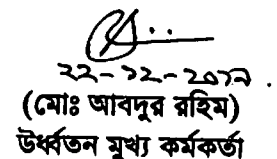 ২২-১২-২০১৭.
(মোঃ আবদুর রহিম)
উর্ধ্বতন মুখ্য কর্মকর্তা